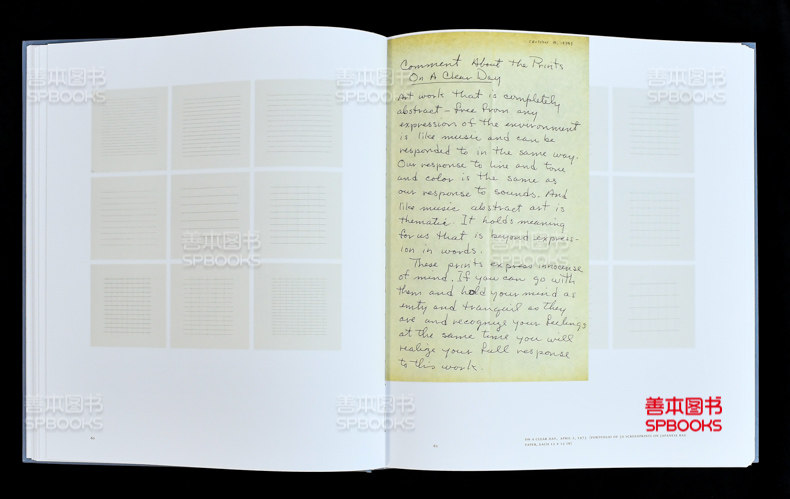 Comment About the Prints
On A Clear Day
Art work that is completely
abstract – free from any
expression of the environment
is like music and can be
responded to in the same way.
Our response to line and tone
and color is the same as
our response to sounds. And
like music abstract art is
thematic. It holds meaning
for us that is beyond express-
ion in words.
These prints express innocense
of mind. If you can go with
them and hold your mind as
emty and tranquil as they
are and recognize your feelings
at the same time you will
realize your full response
to this work.
善本图书
SPBOOKS
善本图书
SPBOOKS
善本图书
SPBOOKS
善本图书
SPBOOKS
善本图书
SPBOOKS
善本图书
SPBOOKS
善本图书
SPBOOKS
善本图书
SPBOOKS
善本图书
SPBOOKS